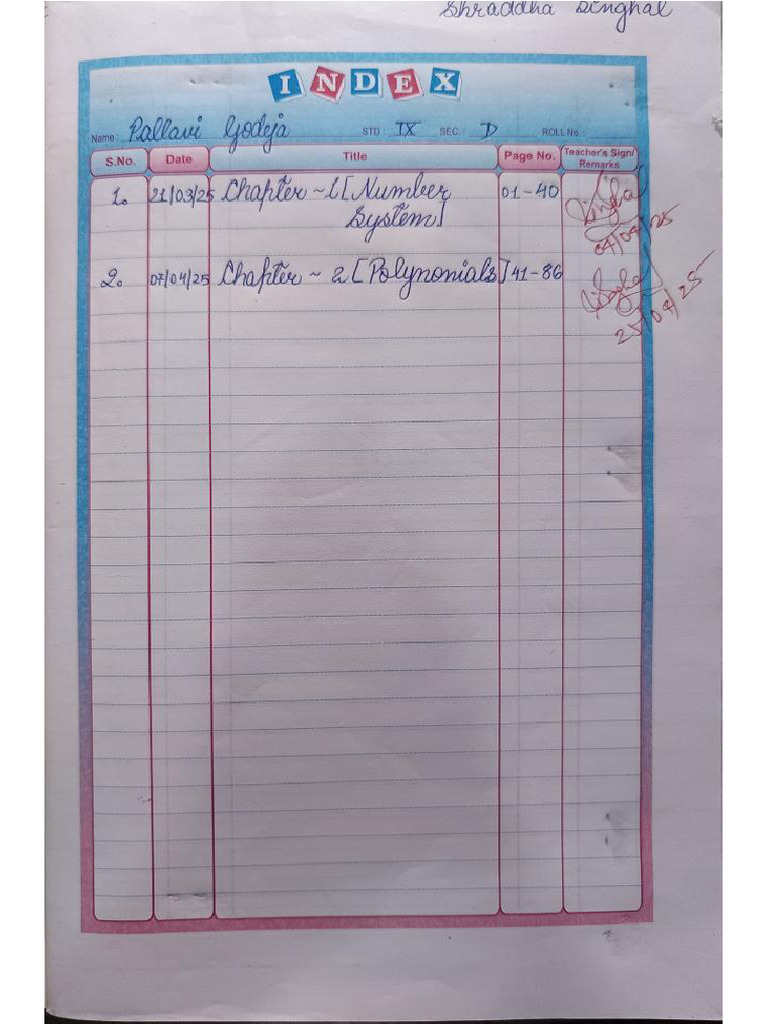 Shraddha Singhal
INDEX
Name: Pallavi Godeja STD: IX SEC.: D ROLL No.:
S.No. Date Title Page No. Teacher's Sign/ Remarks
1. 21/03/25 Chapter ~ 1 [Number 01-40
System]
04/04/25
2. 07/04/25 Chapter ~ 2 [Polynonials] 41-86
25/04/25